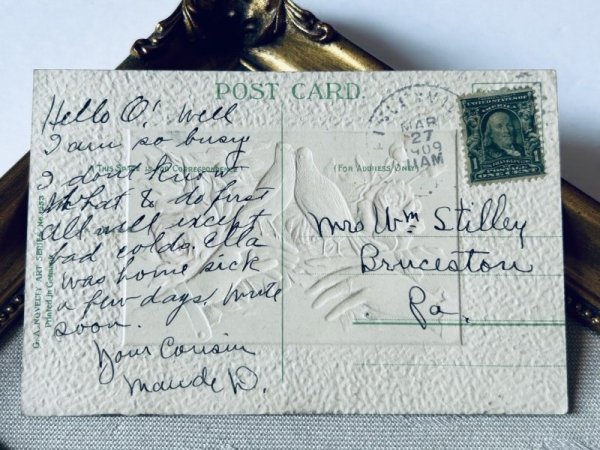 POST CARD
THIS SPACE IS FOR CORRESPONDENCE
(FOR ADDRESS ONLY)
Hello O! Well
I am so busy
I don't know
what to do first
all well except
bad colds. Ella
was home sick
a few days. Write
soon.
Your Cousin
Maude D.
MAR
27
11AM
UNITED STATES OF AMERICA
1
ONE CENT
Mrs Wm Stilley
Bruceston
Pa.
G. A. NOVELTY ART SERIES No.
Printed in Germany